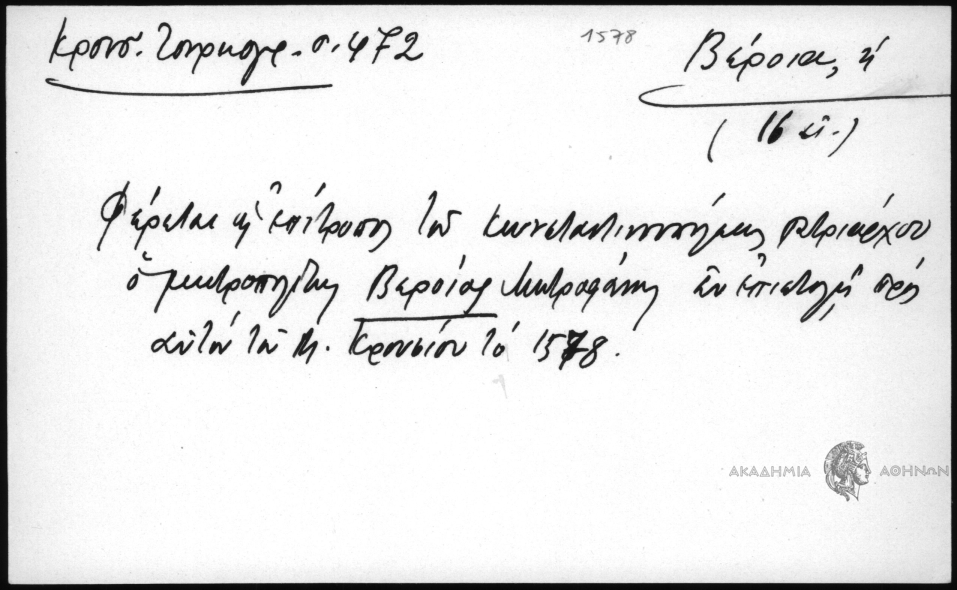 Κρουσ. Τουρκογρ. σ. 472
1578
Βέροια, ἡ
(16 αἰ.)
Φέρεται ὡς ἐπίτροπος τοῦ Κωνσταντινουπόλεως πατριάρχου
ὁ μητροπολίτης Βεροίας Μητροφάνης ἐν ἐπιστολῇ πρὸς
αὐτὸν τοῦ Μ. Κρουσίου τὸ 1578.
ΑΚΑΔΗΜΙΑ ΑΘΗΝΩΝ